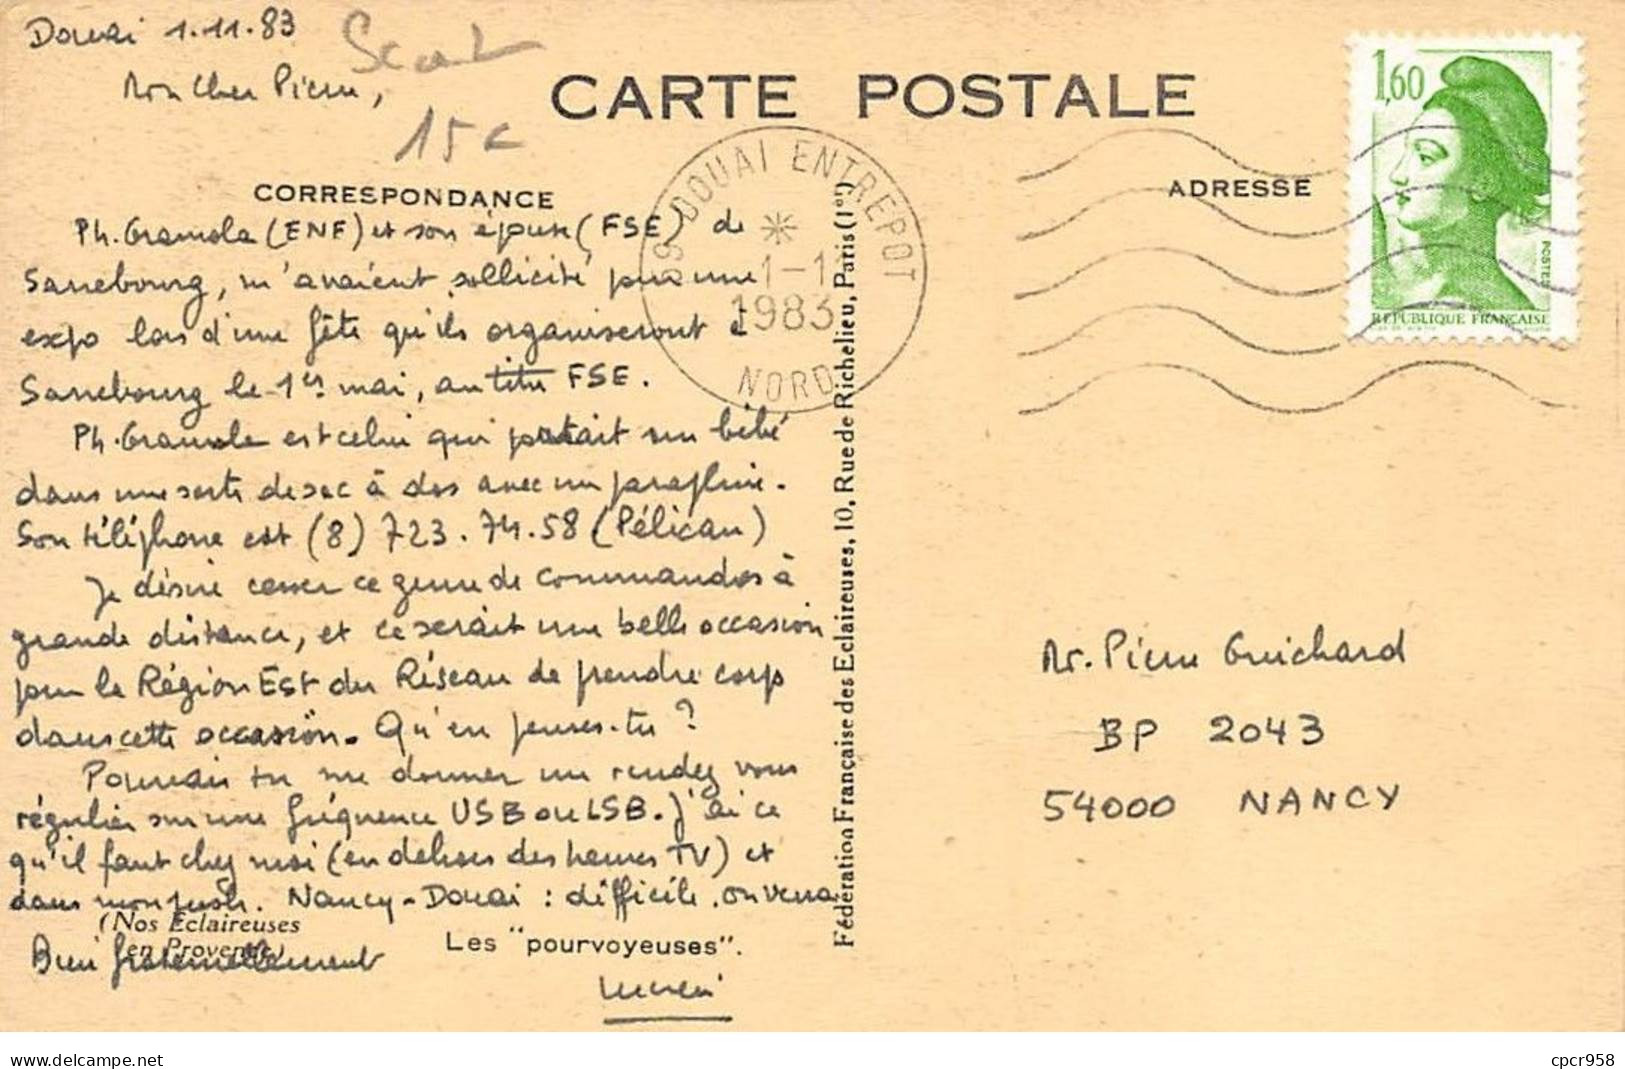 Douai 1.11.83
Scout
Mon cher Pierre,
15 €
CARTE POSTALE
CORRESPONDANCE
ADRESSE
1,60
POSTES
REPUBLIQUE FRANÇAISE
59 DOUAI ENTREPOT
1-1
1983
NORD
Ph. Gramola (ENF) et son épouse (FSE) de
Sarrebourg, m'avaient sollicité pour une
expo lors d'une fête qu'ils organiseront à
Sarrebourg le 1er mai, au titre FSE.
Ph. Gramola est celui qui portait un bébé
dans une sorte de sac à dos avec un parapluie.
Son téléphone est (8) 723.74.58 (Pélican)
Je désire cesser ce genre de commandos à
grande distance, et ce serait une belle occasion
pour la Région Est du Réseau de prendre corps
dans cette occasion. Qu'en penses-tu ?
Pourrais tu me donner un rendez vous
régulier sur une fréquence USB ou LSB. J'ai ce
qu'il faut chez moi (en dehors des heures TV) et
dans mon Nancy-Douai : difficile. on verra
(Nos Eclaireuses
en Provence)
Bien fraternellement
Les "pourvoyeuses".
Lucien
Fédération Française des Eclaireuses, 10, Rue de Richelieu, Paris (1er)
Mr. Pierre Guichard
BP 2043
54000 NANCY
delcampe.net
cpcr958